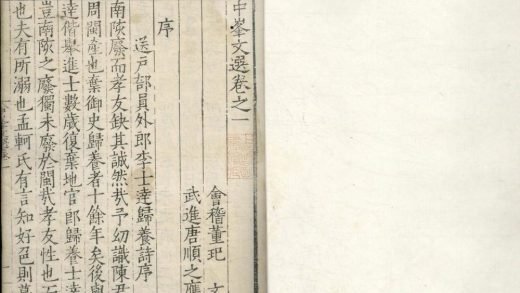 中峯文選卷之一
會稽董玘 文
武進唐順之應
序
送戶部員外郎李士達歸養詩序
南陔廢而孝友缺其誠然哉予幼識陳君
周閩產也棄御史歸養者十餘年矣後與
達偕舉進士數歲復棄地官郎歸養士達
豈南陔之廢獨未廢於閩哉孝友性也
也夫有所溺也孟軻氏有言知好色則慕